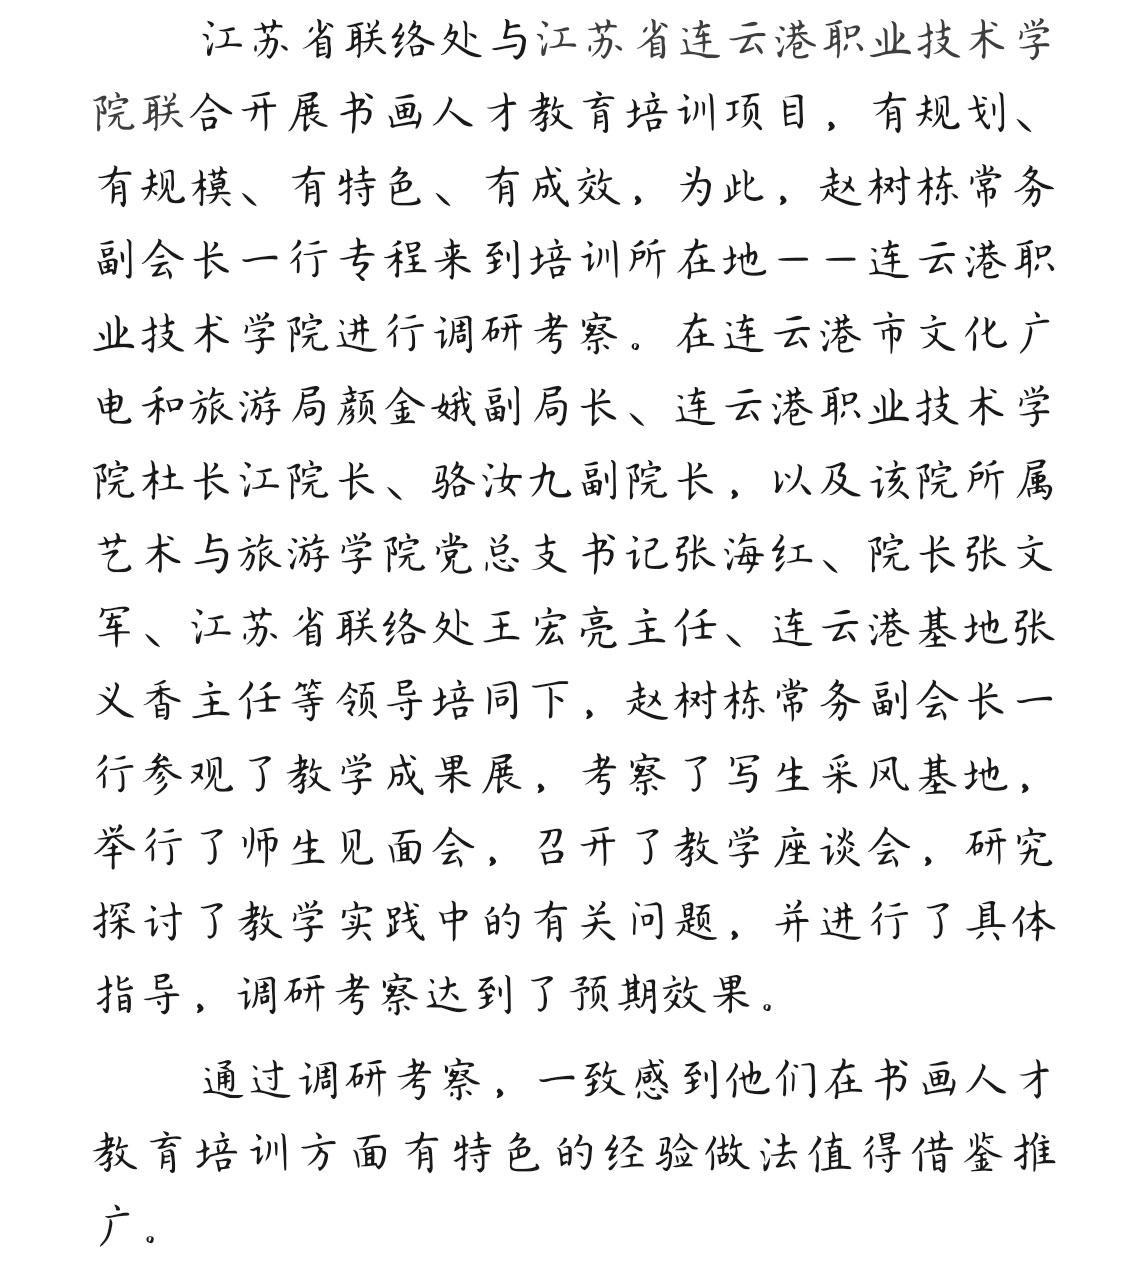 江苏省联络处与江苏省连云港职业技术学
院联合开展书画人才教育培训项目，有规划、
有规模、有特色、有成效，为此，赵树栋常务
副会长一行专程来到培训所在地——连云港职
业技术学院进行调研考察。在连云港市文化广
电和旅游局颜金娥副局长、连云港职业技术学
院杜长江院长、骆汝九副院长，以及该院所属
艺术与旅游学院党总支书记张海红、院长张文
军、江苏省联络处王宏亮主任、连云港基地张
义香主任等领导培同下，赵树栋常务副会长一
行参观了教学成果展，考察了写生采风基地，
举行了师生见面会，召开了教学座谈会，研究
探讨了教学实践中的有关问题，并进行了具体
指导，调研考察达到了预期效果。
通过调研考察，一致感到他们在书画人才
教育培训方面有特色的经验做法值得借鉴推
广。